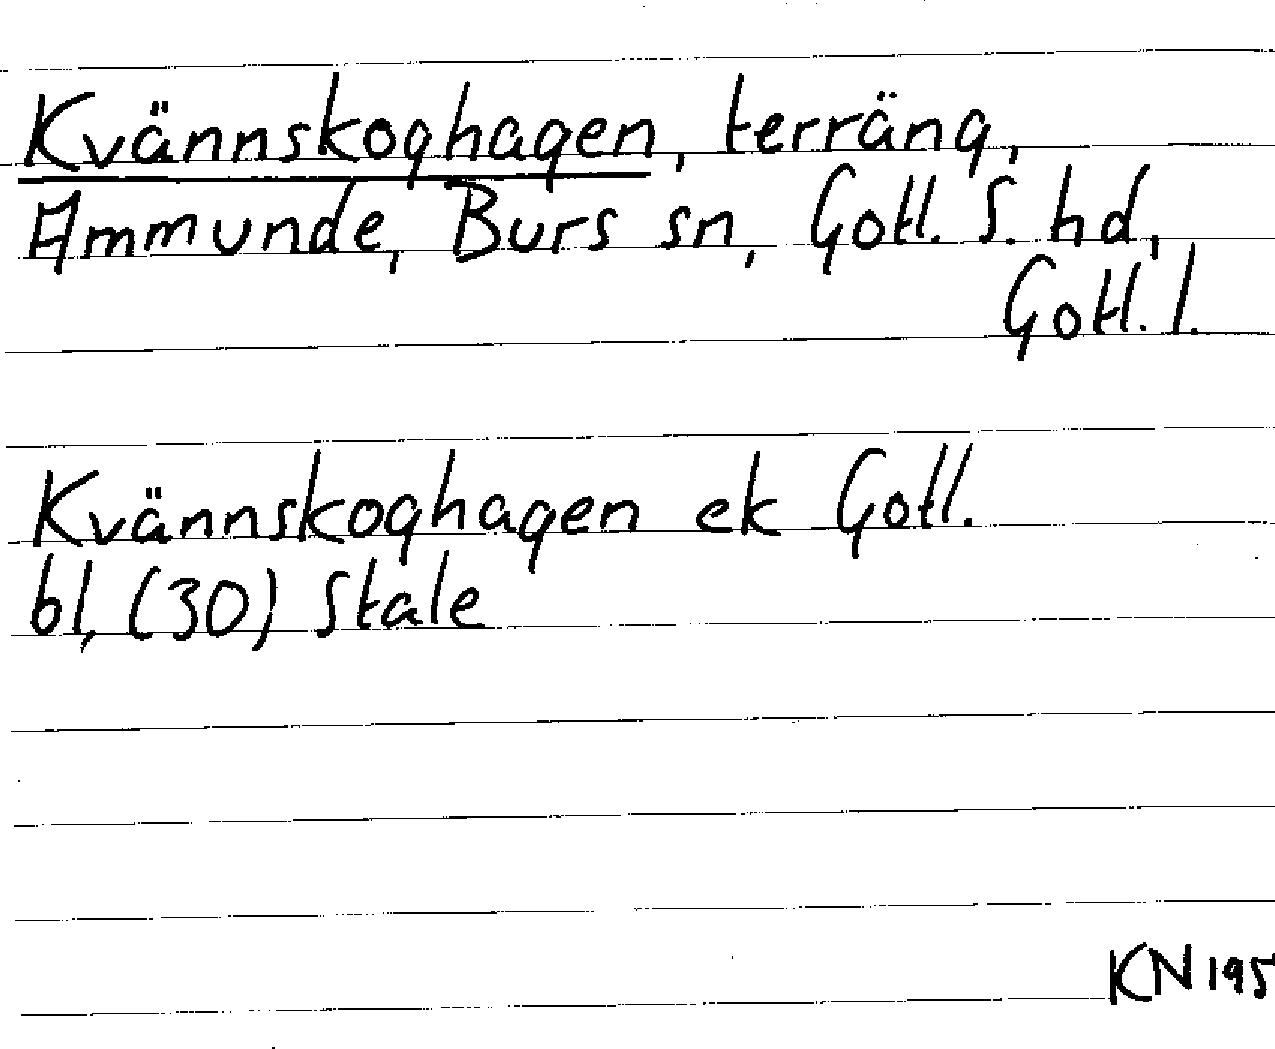 Kvännskoghagen, terräng,
Ammunde, Burs sn, Gotl. S. hd,
Gotl. l.
Kvännskoghagen ek Gotl.
bl, (30) Stale
KN 195